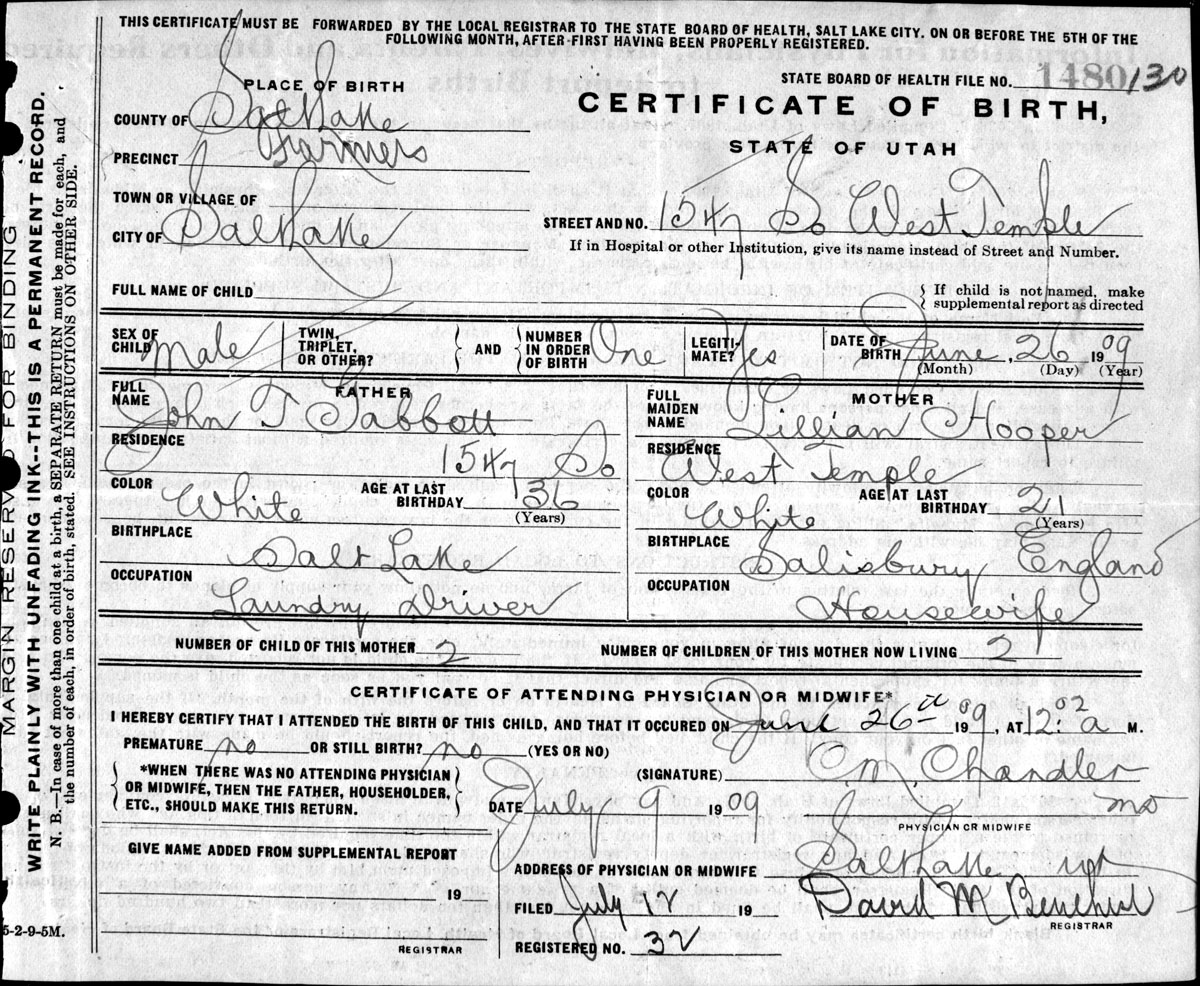 THIS CERTIFICATE MUST BE FORWARDED BY THE LOCAL REGISTRAR TO THE STATE BOARD OF HEALTH, SALT LAKE CITY. ON OR BEFORE THE 5TH OF THE
FOLLOWING MONTH, AFTER-FIRST HAVING BEEN PROPERLY REGISTERED.
STATE BOARD OF HEALTH FILE NO. 1480/30
PLACE OF BIRTH
CERTIFICATE OF BIRTH,
STATE OF UTAH
COUNTY OF Salt Lake
PRECINCT Farmers
TOWN OR VILLAGE OF
CITY OF Salt Lake
STREET AND NO. 1547 So West Temple
If in Hospital or other Institution, give its name instead of Street and Number.
FULL NAME OF CHILD
If child is not named, make
supplemental report as directed
SEX OF CHILD Male
TWIN, TRIPLET, OR OTHER?
AND
NUMBER IN ORDER OF BIRTH One
LEGITI-MATE? Yes
DATE OF BIRTH June, 26 1909
(Month) (Day) (Year)
FATHER
FULL NAME John T Tabbott
RESIDENCE 1547 So
COLOR White
AGE AT LAST BIRTHDAY 36
(Years)
BIRTHPLACE Salt Lake
OCCUPATION Laundry Driver
MOTHER
FULL MAIDEN NAME Lillian Hooper
RESIDENCE West Temple
COLOR White
AGE AT LAST BIRTHDAY 21
(Years)
BIRTHPLACE Salisbury England
OCCUPATION Housewife
NUMBER OF CHILD OF THIS MOTHER 2
NUMBER OF CHILDREN OF THIS MOTHER NOW LIVING 2
CERTIFICATE OF ATTENDING PHYSICIAN OR MIDWIFE*
I HEREBY CERTIFY THAT I ATTENDED THE BIRTH OF THIS CHILD, AND THAT IT OCCURED ON June 26th 1909, AT 12:02 a M.
PREMATURE no OR STILL BIRTH? no (YES OR NO)
*WHEN THERE WAS NO ATTENDING PHYSICIAN
OR MIDWIFE, THEN THE FATHER, HOUSEHOLDER,
ETC., SHOULD MAKE THIS RETURN.
(SIGNATURE) C M Chandler
DATE July 9 1909 MD
PHYSICIAN OR MIDWIFE
GIVE NAME ADDED FROM SUPPLEMENTAL REPORT
19
REGISTRAR
ADDRESS OF PHYSICIAN OR MIDWIFE Salt Lake
FILED July 9 19
REGISTRAR
REGISTERED NO. 32
MARGIN RESERVED FOR BINDING
WRITE PLAINLY WITH UNFADING INK--THIS IS A PERMANENT RECORD.
N. B.—In case of more than one child at a birth, a SEPARATE RETURN must be made for each, and
the number of each, in order of birth, stated. SEE INSTRUCTIONS ON OTHER SIDE.
5-2-9-5M.